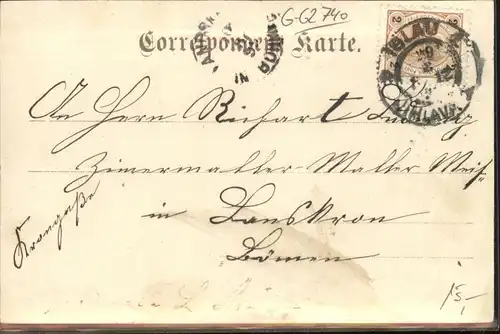 G-G2740
Correspondenz Karte.
2
IGLAU
JIHLAVA
An Herrn Richart Ludwig
Zimermaller-Maller Meis
in Lanskron
Bömen
Krongaße
15,-